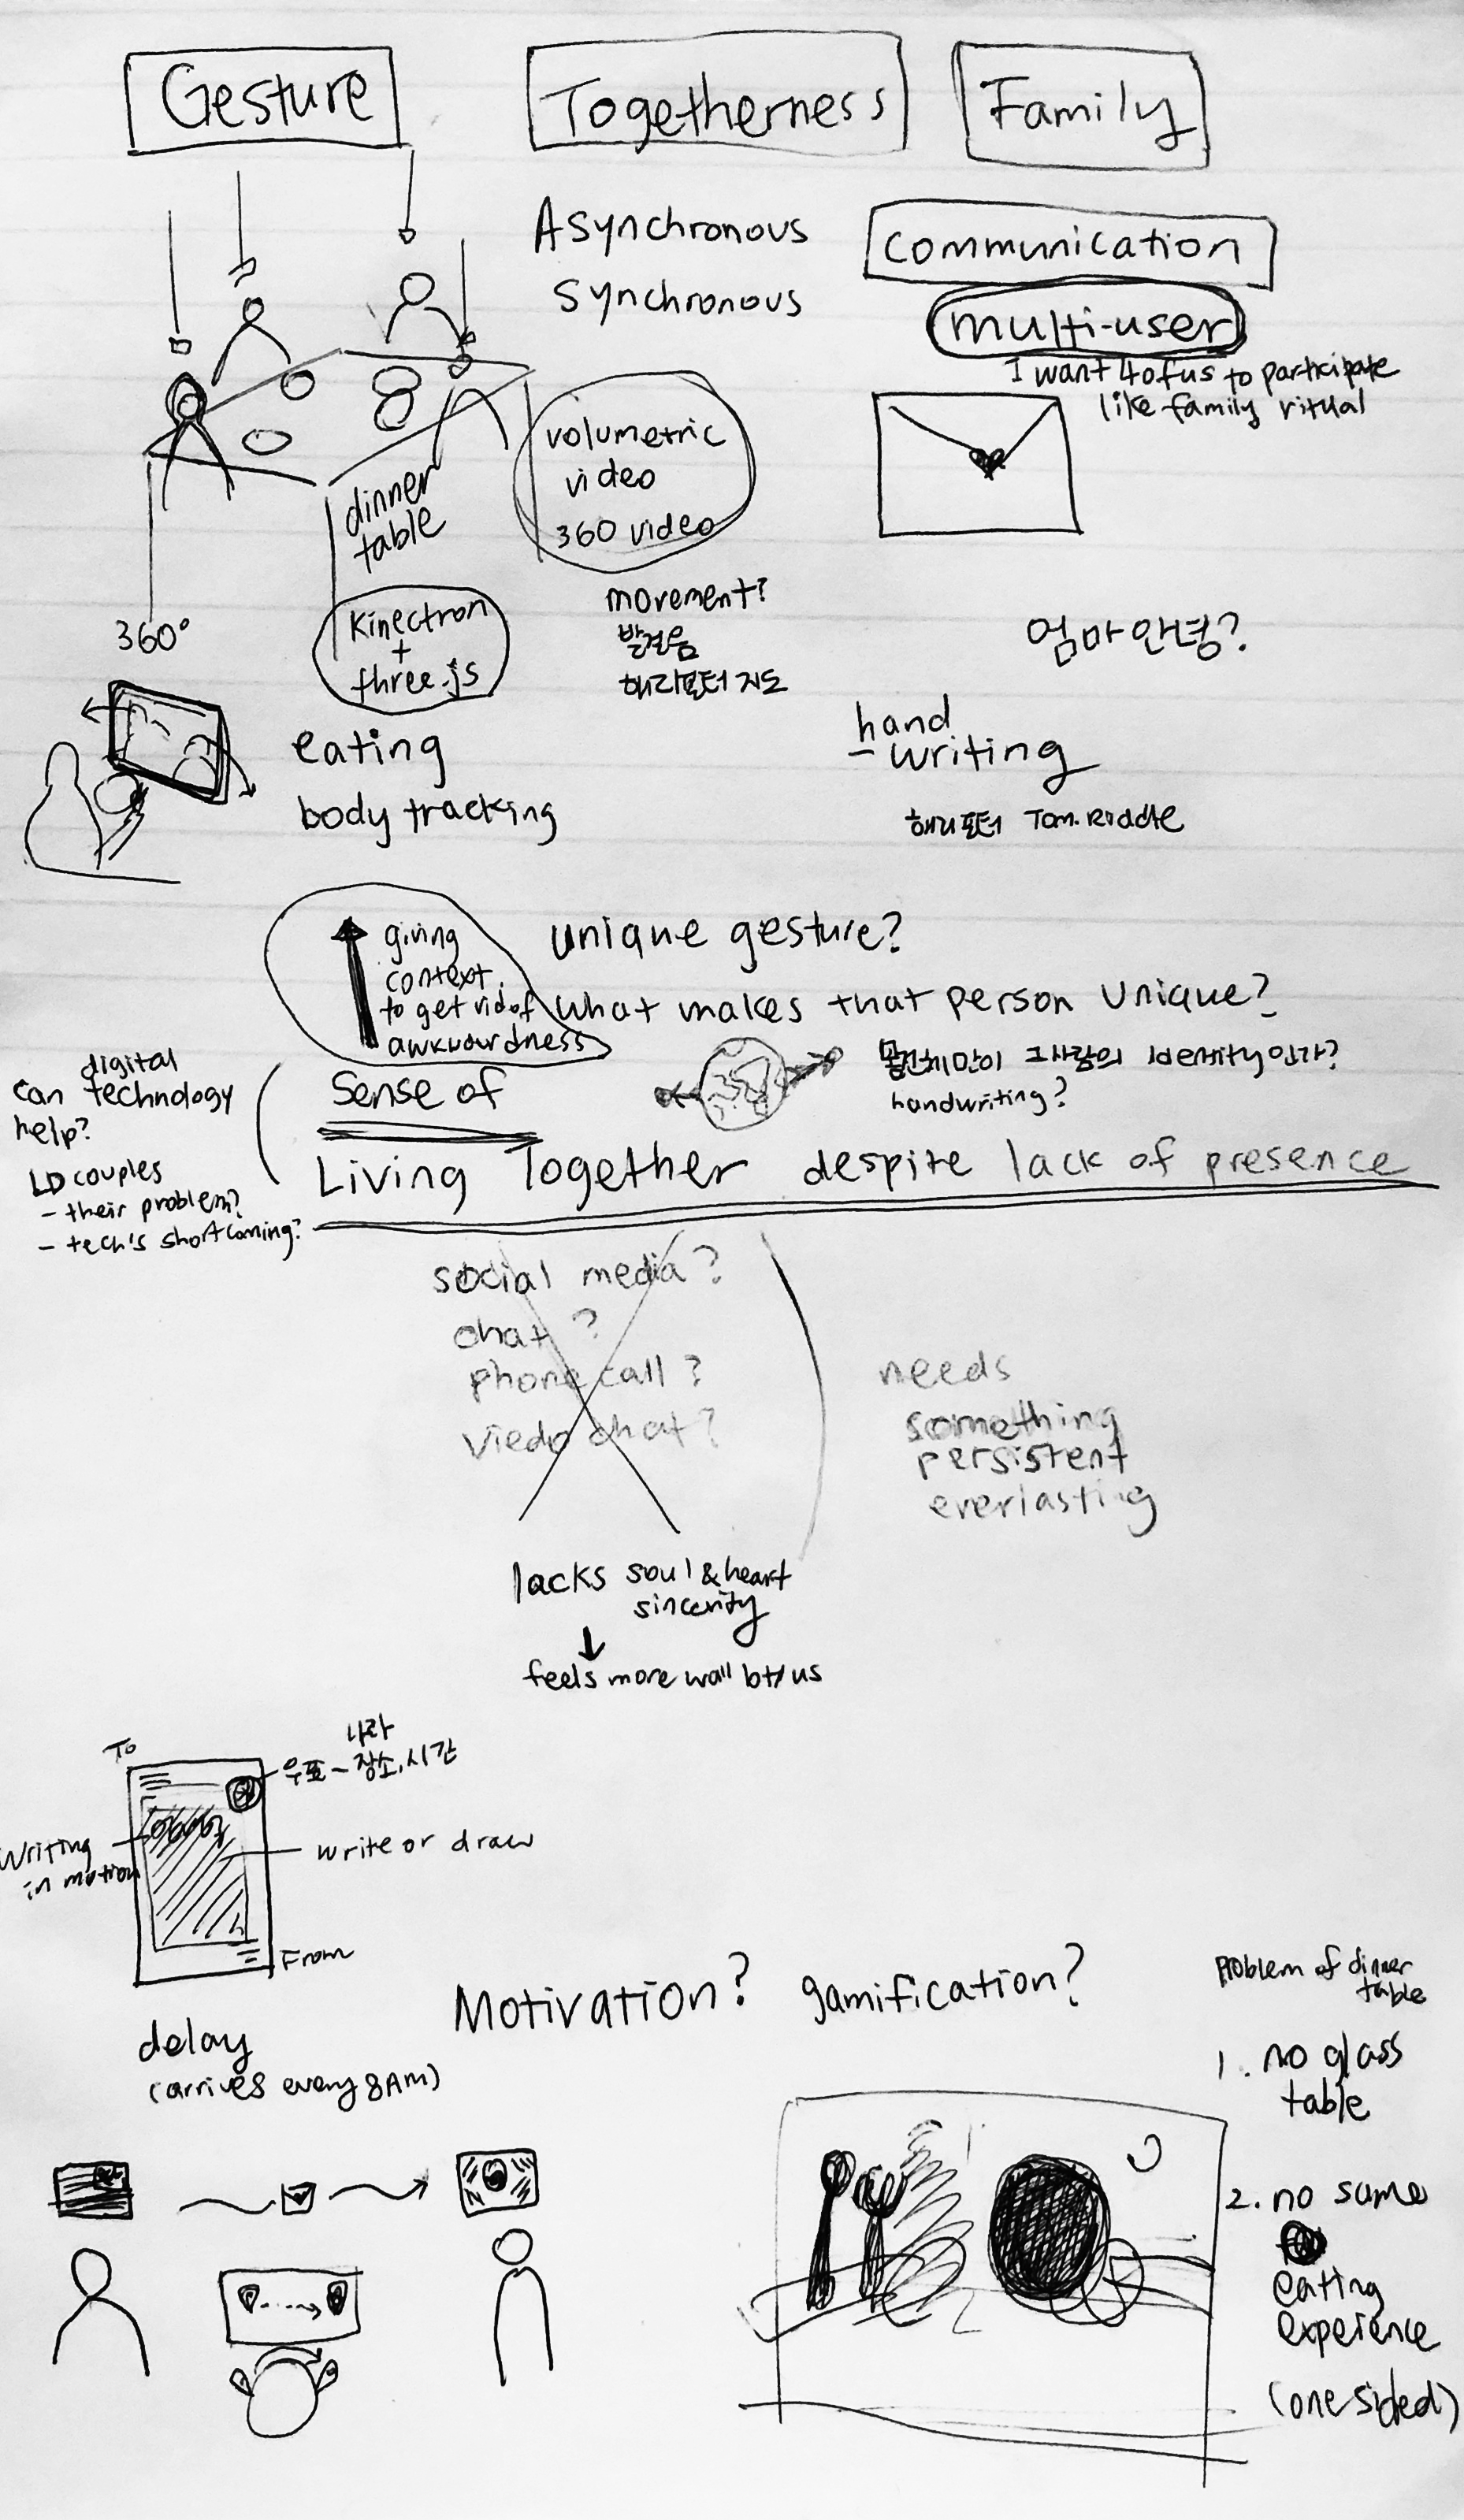 Gesture
Togetherness
Family
Asynchronous
Synchronous
communication
multi-user
I want 4 of us to participate
like family ritual
volumetric
video
360 video
dinner
table
360°
Kinectron
+
three.js
movement?
발걸음
해리포터 지도
엄마 안녕?
eating
body tracking
hand
-writing
해리포터 Tom. Riddle
giving
context
to get rid of
awkwardness
unique gesture?
what makes that person unique?
그 사람의 identity 인가?
handwriting?
digital
can technology
help?
LD couples
- their problem?
- tech's shortcoming?
Sense of
Living Together despite lack of presence
social media?
chat?
phone call?
viedo chat?
needs
something
persistent
everlasting
lacks soul & heart
sincerity
↓
feels more wall bt/us
To
나라
우표 - 장소, 시간
Writing
in motion
write or draw
From
Motivation? gamification?
delay
(arrives every 8AM)
Problem of dinner
table
1. no glass
table
2. no same
eating
experience
(one sided)